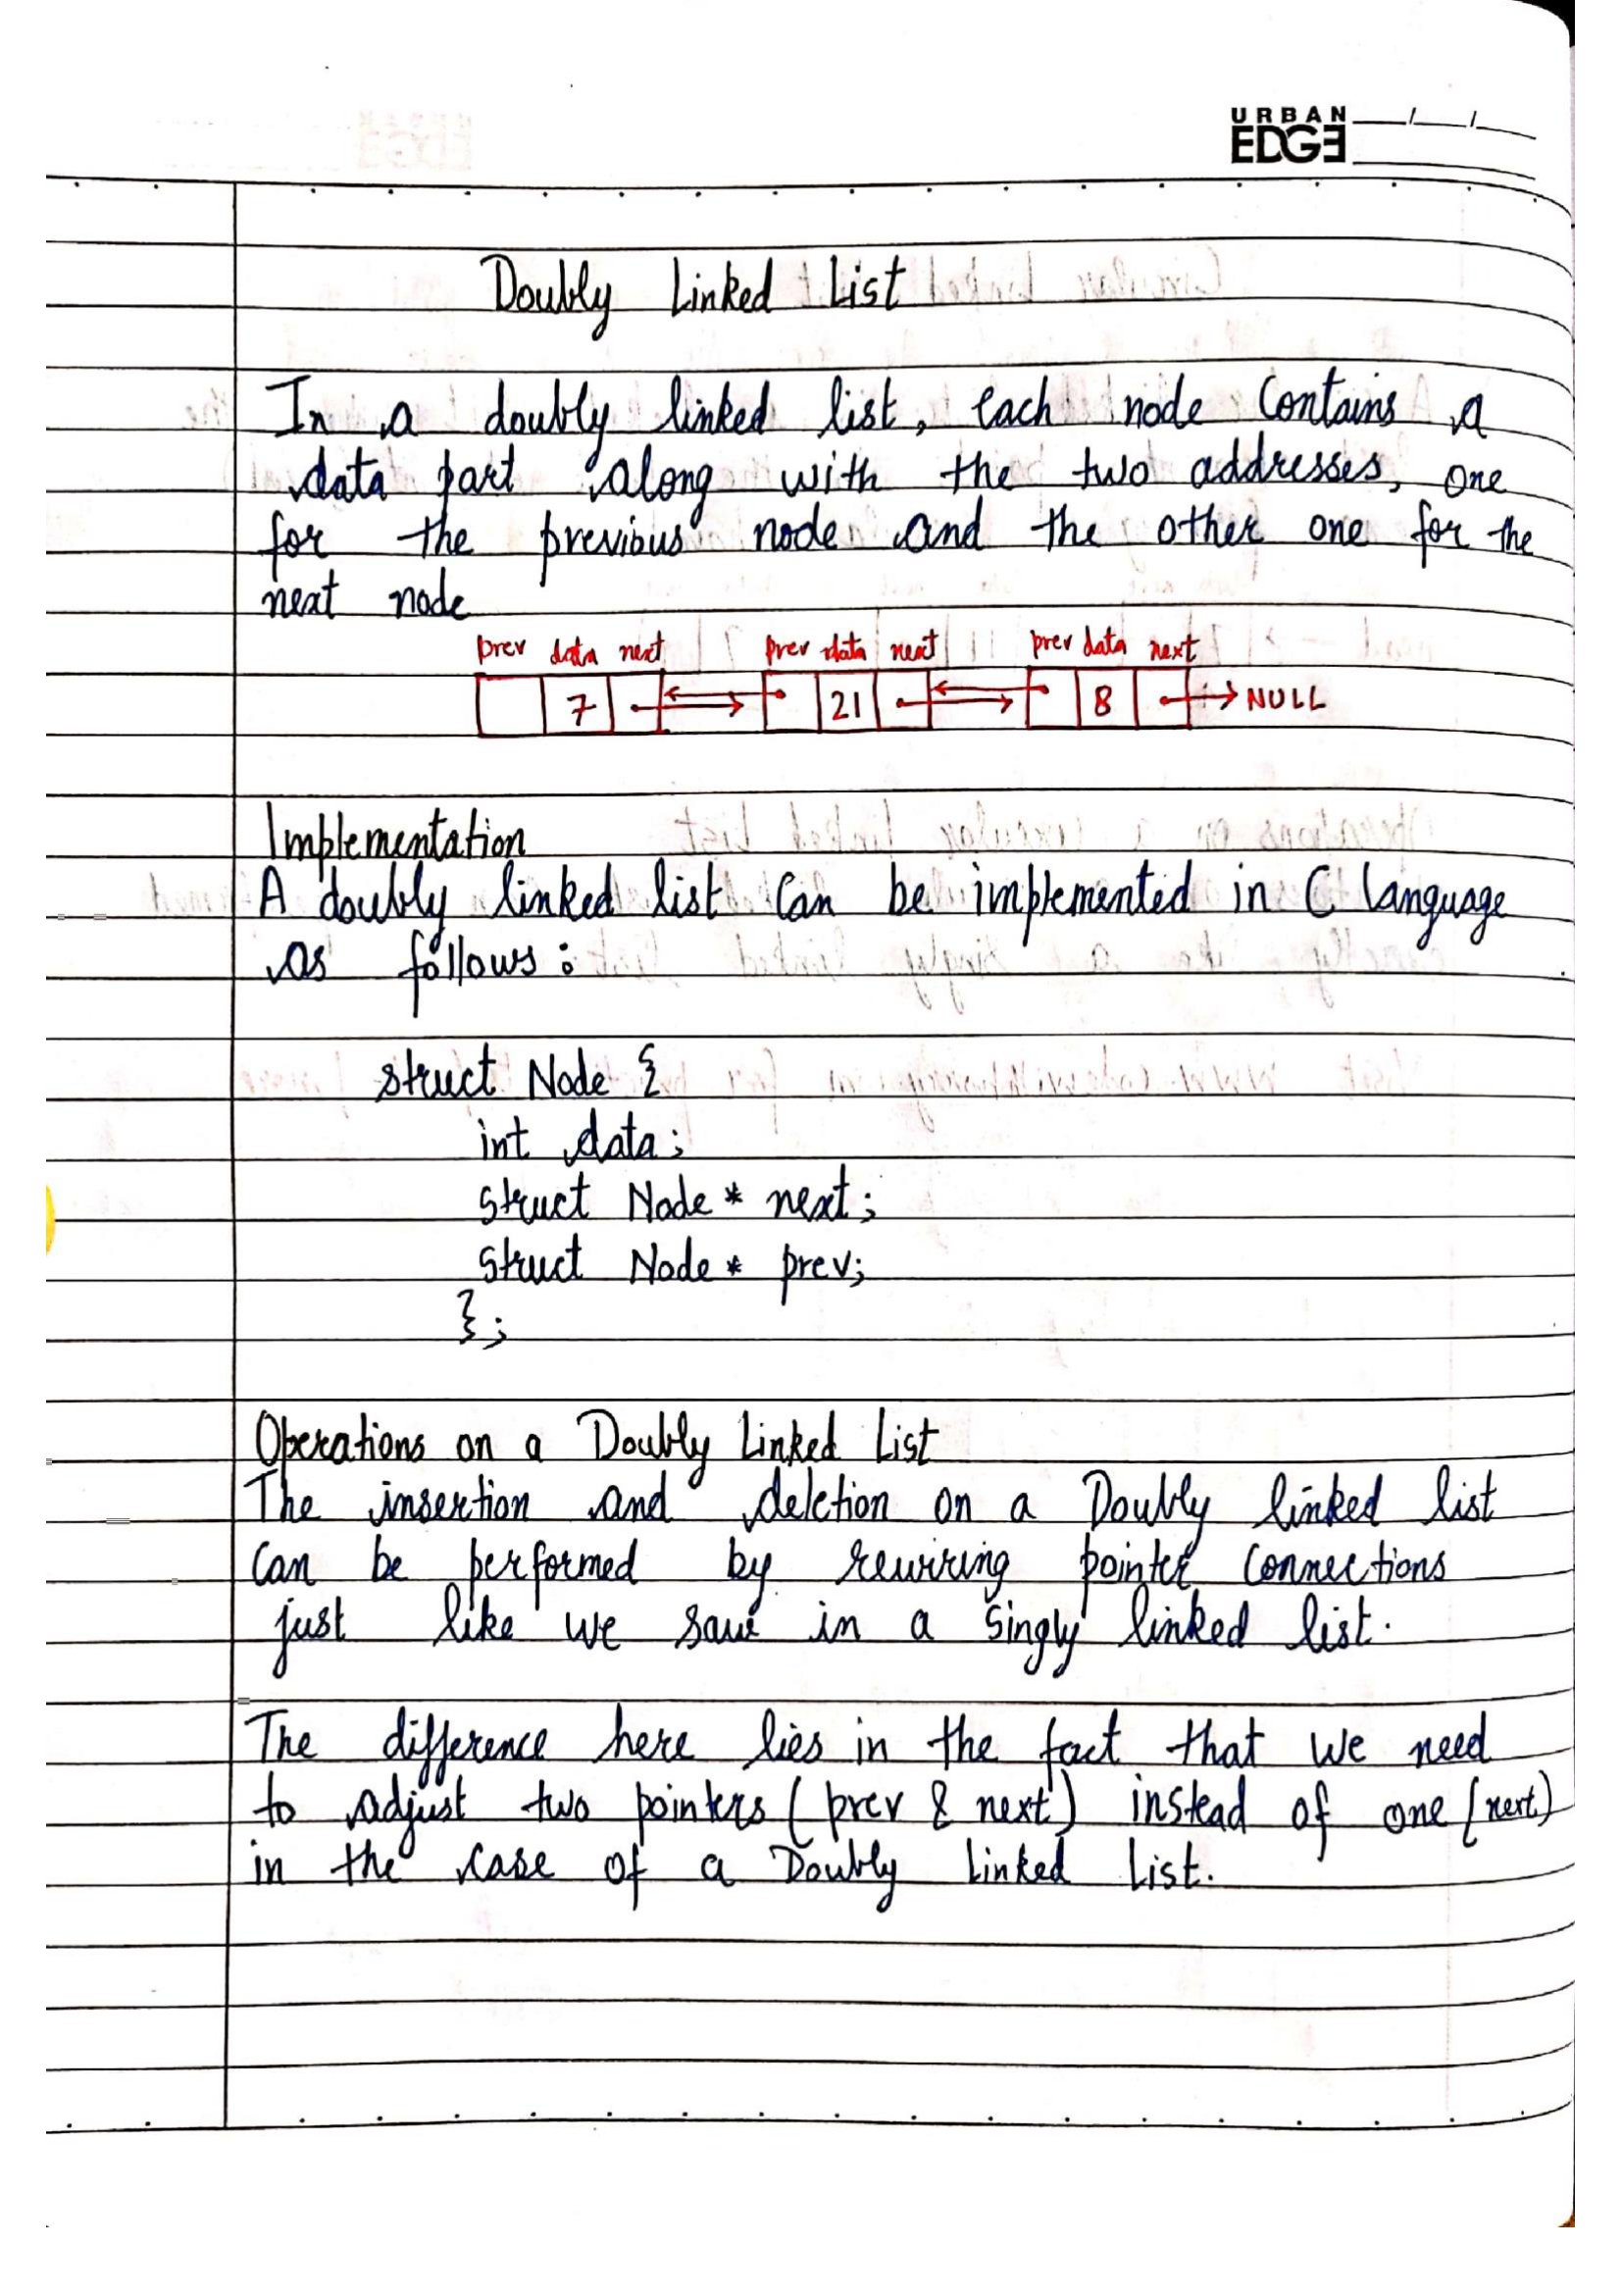 URBAN
EDGE
Doubly Linked List
In a doubly linked list, each node contains a
data part along with the two addresses, one
for the previous node and the other one for the
next node
prev data next prev data next prev data next
7 21 8 NULL
Implementation
A doubly linked list can be implemented in C language
as follows:
struct Node {
int data;
struct Node * next;
struct Node * prev;
};
Operations on a Doubly Linked List
The insertion and deletion on a Doubly linked list
can be performed by rewiring pointer connections
just like we saw in a singly linked list.
The difference here lies in the fact that we need
to adjust two pointers (prev & next) instead of one (next)
in the case of a Doubly Linked List.